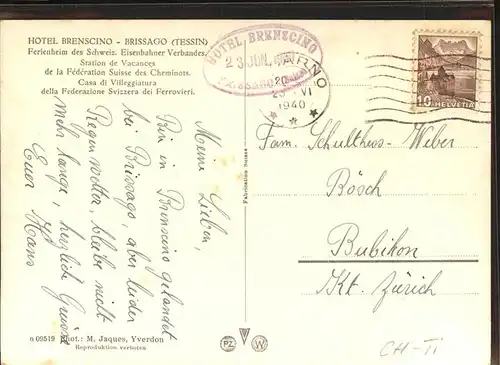 HOTEL BRENSCINO - BRISSAGO (TESSIN)
Ferienheim des Schweiz. Eisenbahner Verbandes.
Station de Vacances
de la Fédération Suisse des Cheminots.
Casa di Villeggiatura
della Federazione Svizzera dei Ferrovieri.
HOTEL BRENSCINO
23 JUN. 1940
LOCARNO
23 VI
1940
10 HELVETIA
Meine Lieben,
Bin in Brenscino gelandet
bei Brissago, aber leider
Regenwetter, bleibe nicht
mehr lange, herzlich Grüsse
Euer Hans
Fabrication Suisse
Fam. Schulthess-Weber
Bösch
Bubikon
Kt. Zürich
n 09519 Phot.: M. Jaques, Yverdon
Reproduktion verboten
PZ W
CH-TI